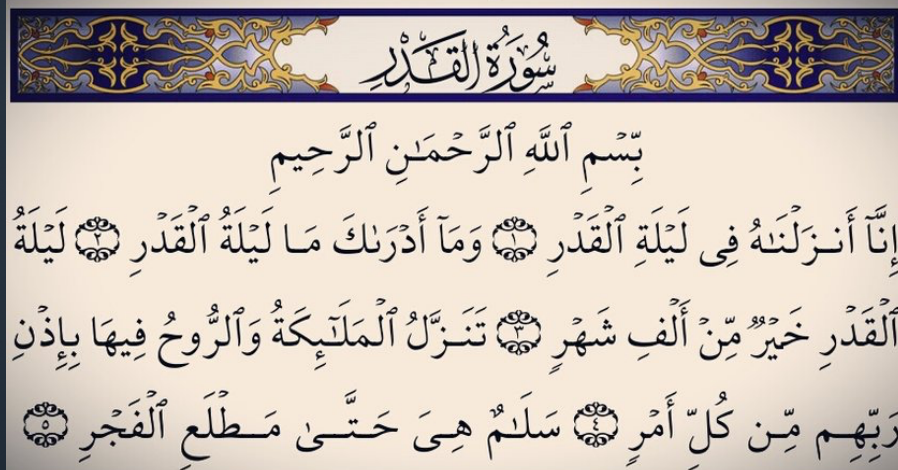 سُورَةُ القَدْرِ
بِّسْمِ ٱللَّهِ ٱلرَّحْمَـٰنِ ٱلرَّحِيمِ
إِنَّآ أَنزَلْنَـٰهُ فِى لَيْلَةِ ٱلْقَدْرِ ١ وَمَآ أَدْرَىٰكَ مَا لَيْلَةُ ٱلْقَدْرِ ٢ لَيْلَةُ
ٱلْقَدْرِ خَيْرٌ مِّنْ أَلْفِ شَهْرٍ ٣ تَنَزَّلُ ٱلْمَلَـٰٓئِكَةُ وَٱلرُّوحُ فِيهَا بِإِذْنِ
رَبِّهِم مِّن كُلِّ أَمْرٍ ٤ سَلَـٰمٌ هِىَ حَتَّىٰ مَطْلَعِ ٱلْفَجْرِ ٥